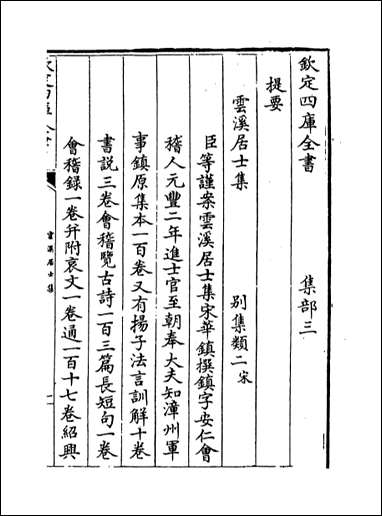 欽定四庫全書 集部三
提要
雲溪居士集 别集類二宋
臣等謹案雲溪居士集宋華鎮撰鎮字安仁會
稽人元豐二年進士官至朝奉大夫知漳州軍
事鎮原集本一百卷又有揚子法言訓解十卷
書説三卷會稽覽古詩一百三篇長短句一卷
會稽録一卷并附哀文一卷通一百十七卷紹興
雲溪居士集
一